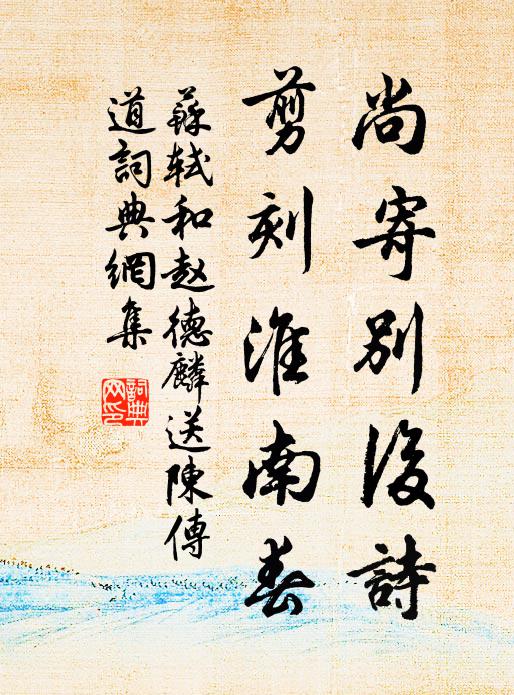 尚寄别後詩
剪刻淮南春
蘇轼和赵德麟送陳傳
道詞典網集
詞典
网印